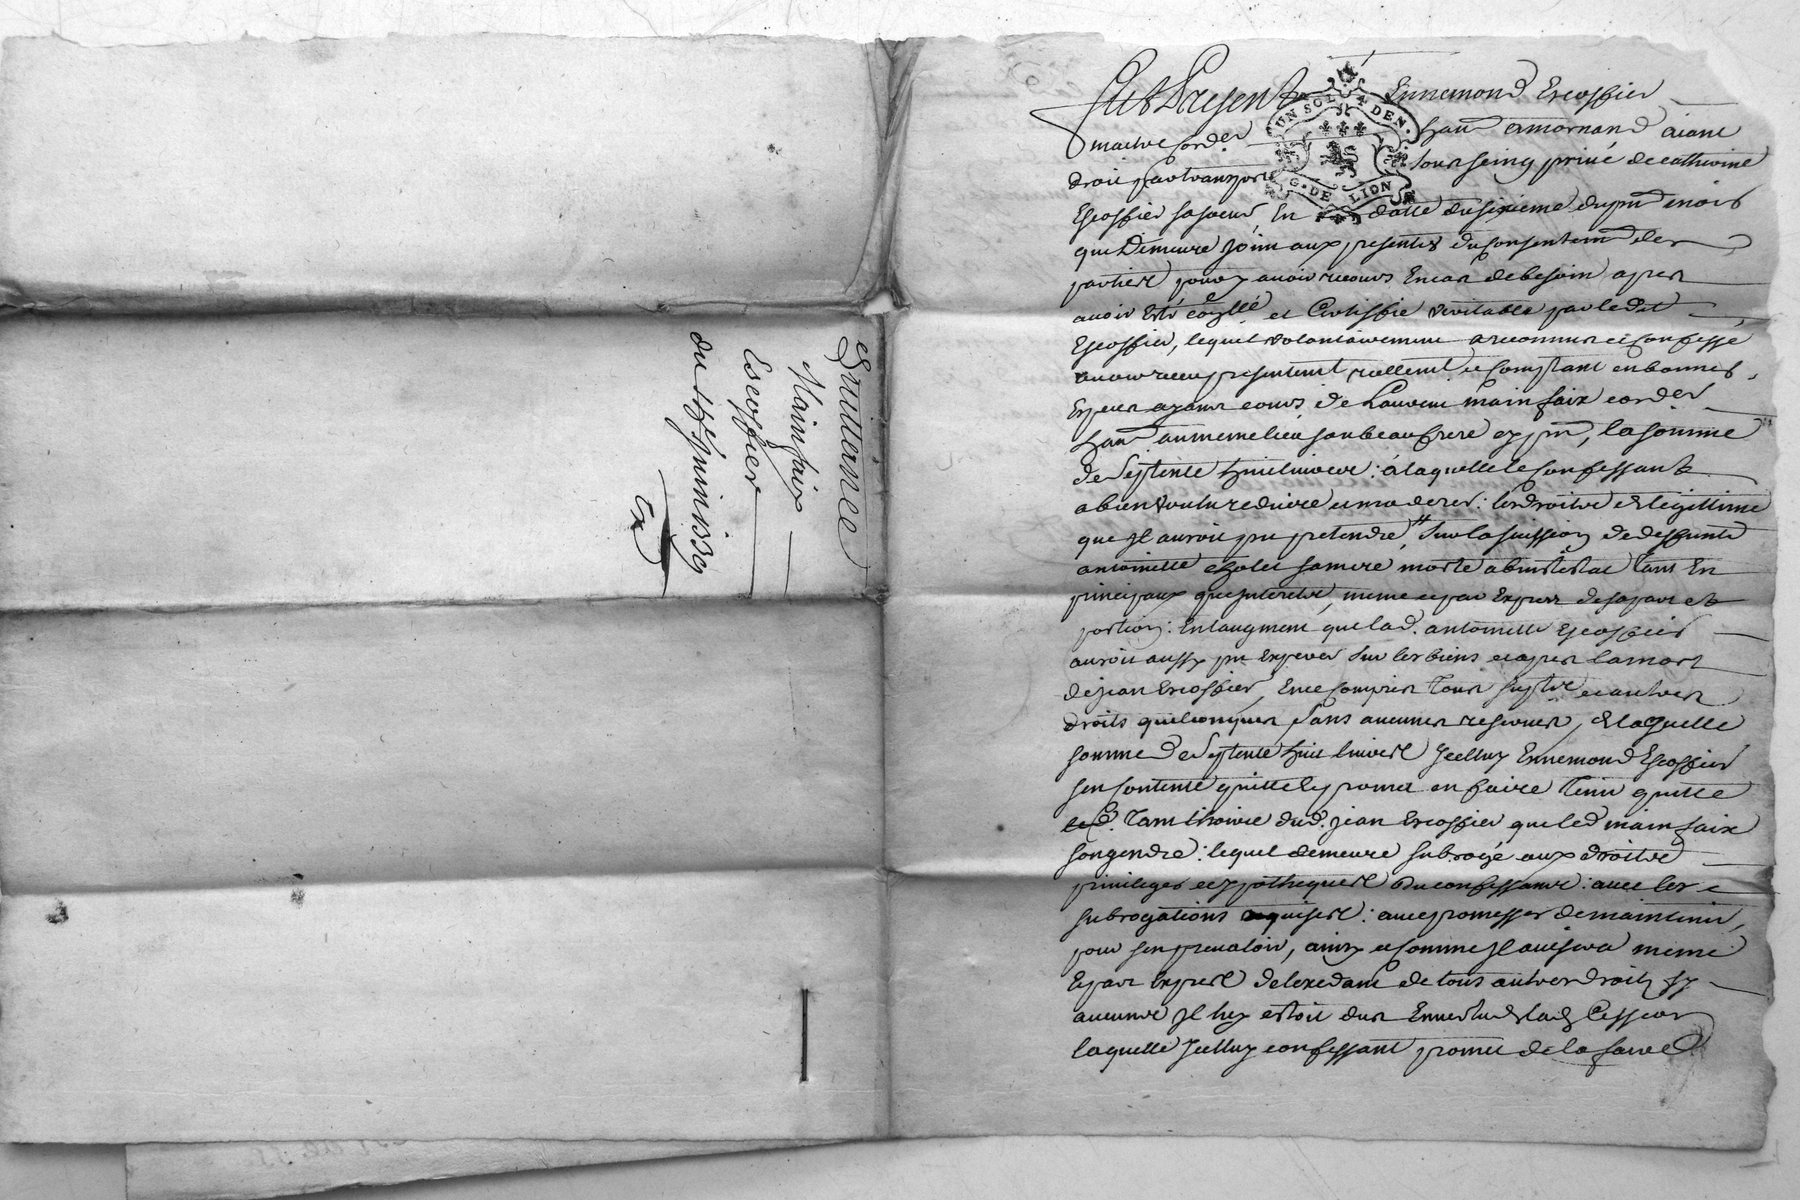 Quittance
Mainfaix
Escoffier
du
Fut Present Ennemond Escoffier
maitre cord.er hant a mornand aiant
droit par transport sous seing privé de catherine
Escoffier sa soeur En datte du sixieme du pnt mois
que Demeure joint aux presentes du consentemt des
parties pour y avoir recours En cas de besoin apres
avoir esté et Certiffié veritable par ledit
Escoffier, lequel volontairement a reconnu et confessé
avoir receu presentemt reellemt et comptant en bonnes
Especes ayant cours de Laurent mainfaix corder
hant au meme lieu son beau frere cy pnt, la somme
de septente huit livres : a laquelle le confessant
a bien voulu reduire et moderer : les droits et legittime
que Il auroit pu pretendre sur la succession de deffunte
antoinette sa mere morte abintestat tant En
principaux que Interets, meme et par Expres de sa part et
portion : En laugment que lad. antoinette Escoffier
auroit aussy pu Esperer sur les biens et apres la mort
de jean Escoffier, En ce compris tous suplts et autres
droits quelconques sans aucunes reserves, de laquelle
somme de septente huit livres Icelluy Ennemond Escoffier
sen contente quitte et promet en faire tenir quitte
tant lhoirie dud. jean Escoffier que led mainfaix
son gendre : lequel demeure subrogé aux droits
privileges et ypotheques du confessant : avec les
subrogations requises : avec promesses de maintenir
pour sen prevaloir, ainsy et comme Il avisera meme
Et par Expres de lexedant de tous autres droits sy
aucuns Il luy estoit dus En vertu de lad. Cession
laquelle Icelluy confessant promet de la faire
UN SOL 4 DEN.
G. DE LION